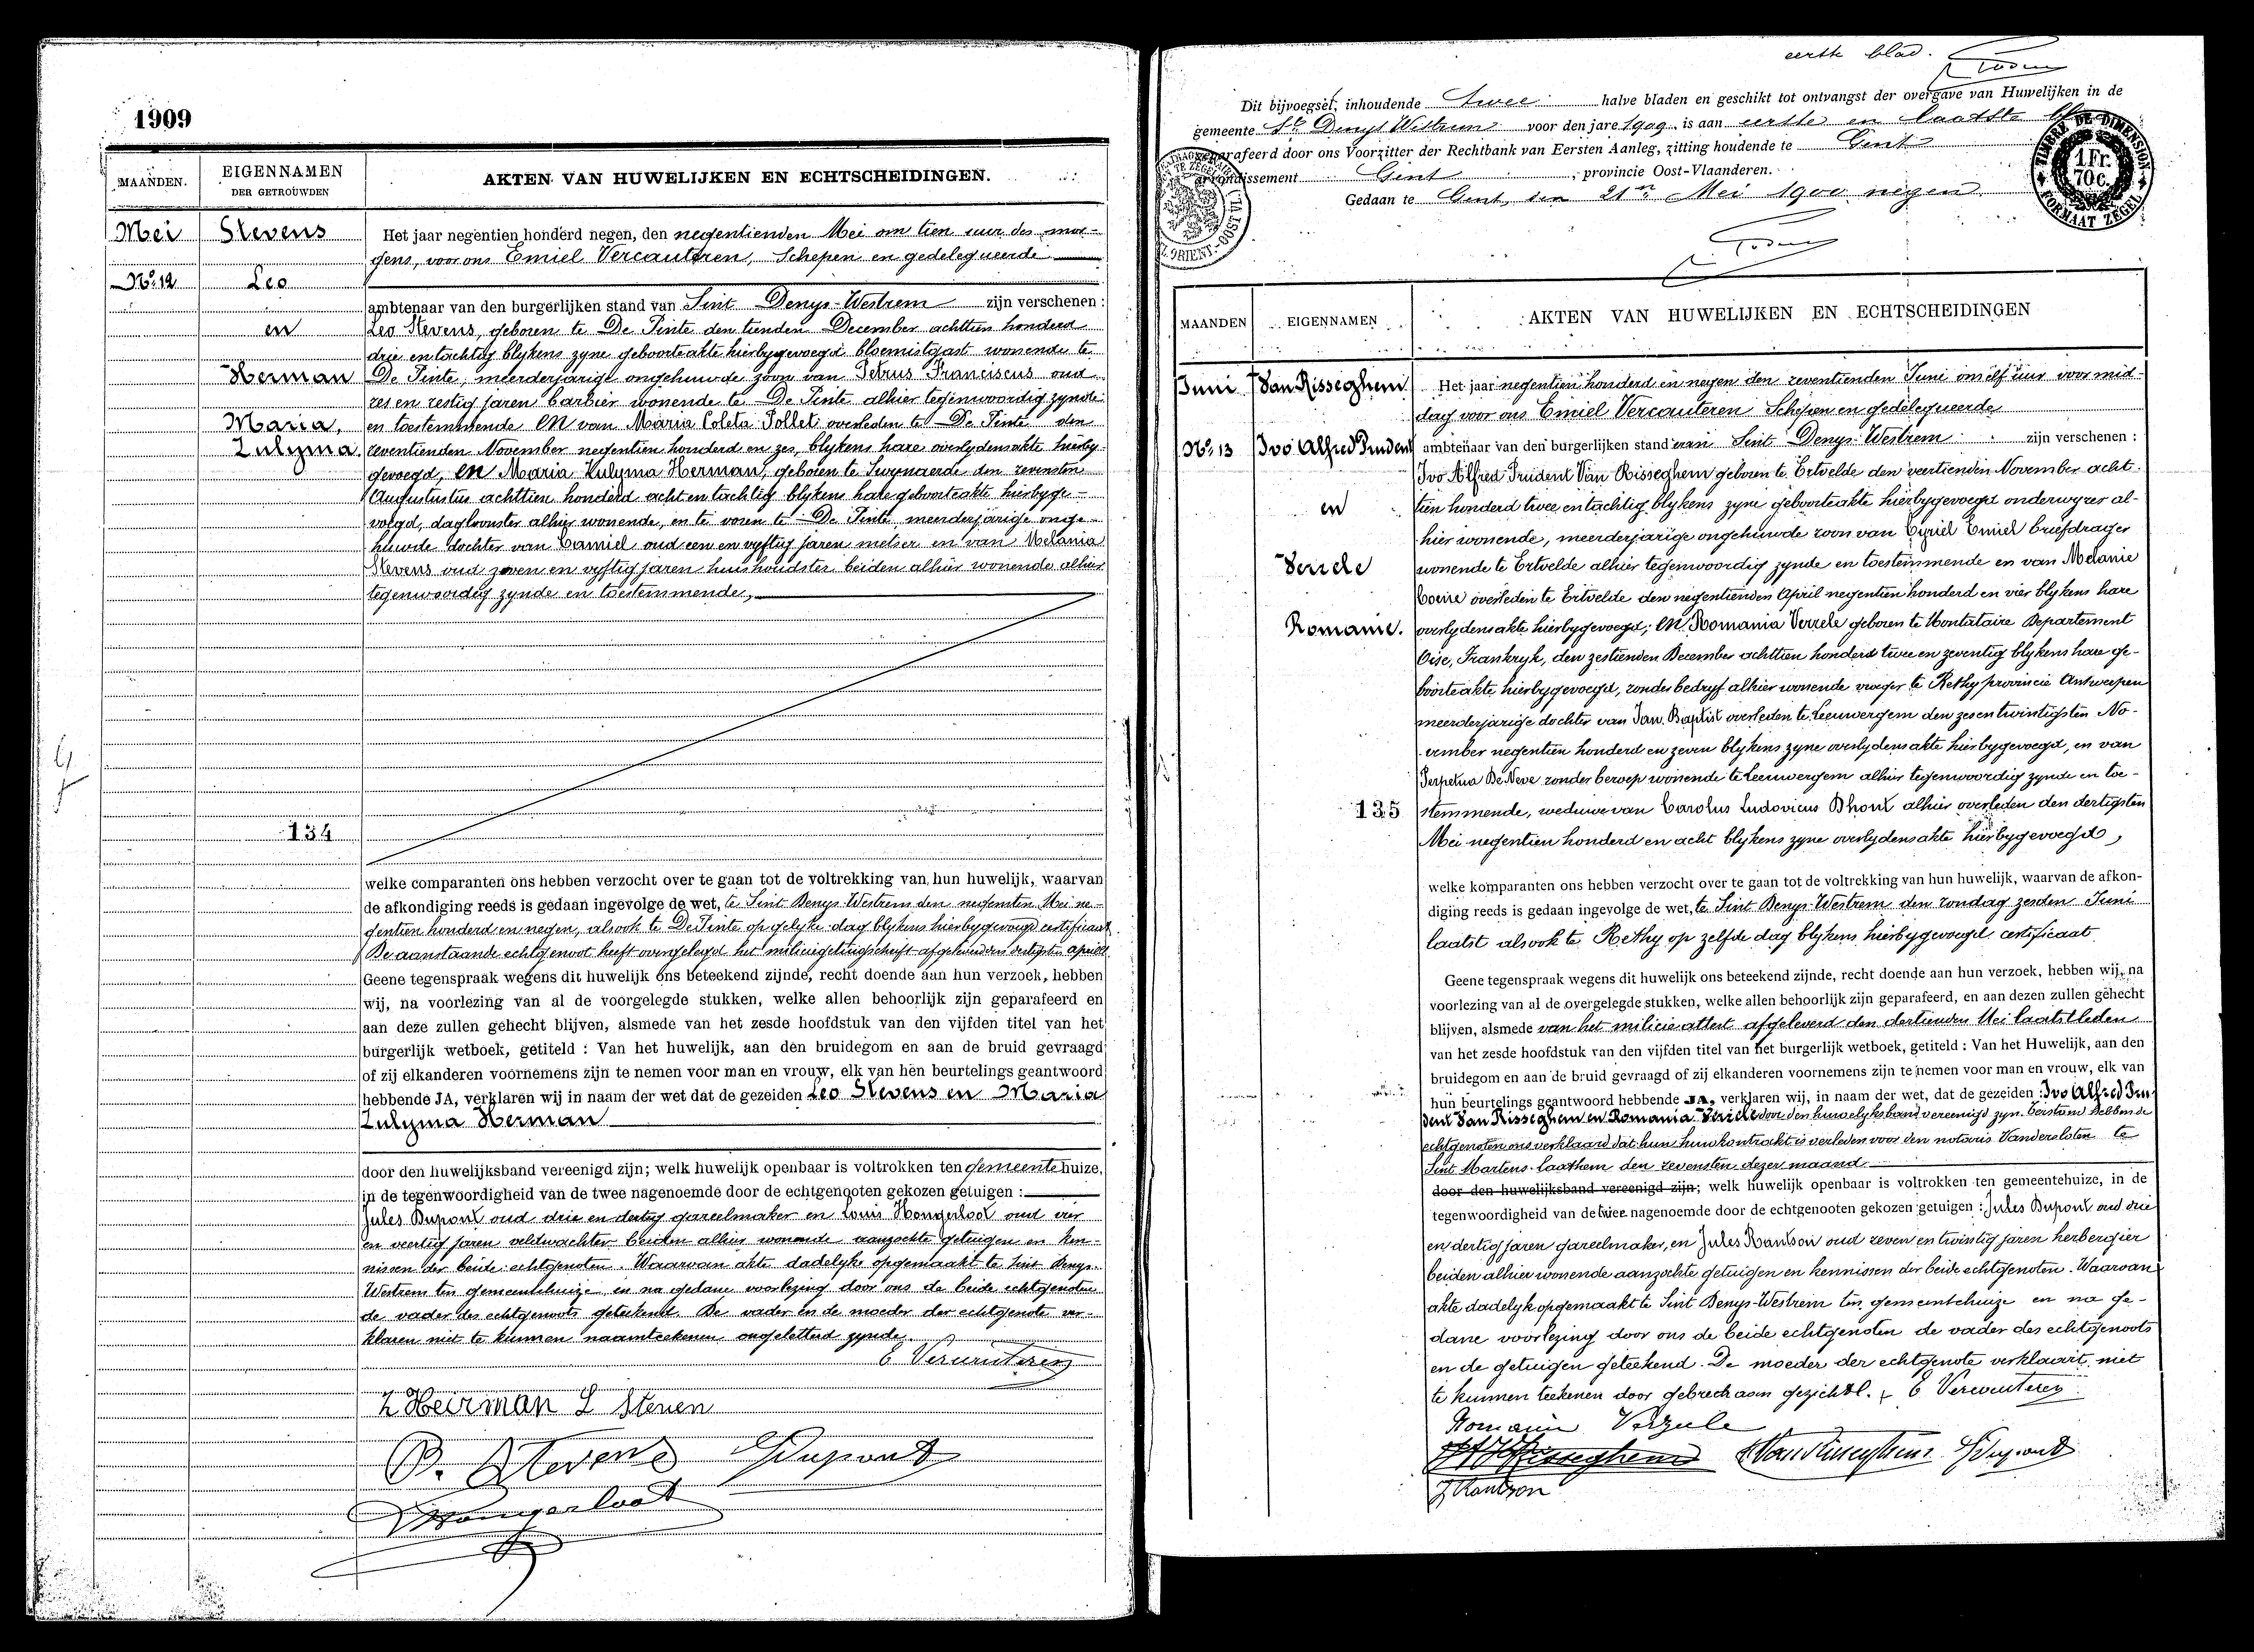 1909
MAANDEN.
EIGENNAMEN
DER GETROUWDEN
AKTEN VAN HUWELIJKEN EN ECHTSCHEIDINGEN.
Mei
Stevens
No. 12
Leo
en
Herman
Maria,
Zulyma.
134
Het jaar negentien honderd negen, den negentienden Mei om tien uur des mor-
gens, voor ons Emiel Vercauteren, Schepen en gedelegueerde
ambtenaar van den burgerlijken stand van Sint Denys-Westrem zijn verschenen :
Leo Stevens, geboren te De Pinte den tienden December achttien honderd
drie en tachtig blykens zyne geboorteakte hierbygevoegd bloemistgast wonende te
De Pinte, meerderjarige ongehuwde zoon van Petrus Franciscus oud
zes en zestig jaren barbier wonende te De Pinte alhier tegenwoordig zynde
en toestemmende en van Maria Coleta Pollet overleden te De Pinte den
zeventienden November negentien honderd en zes, blykens hare overlydensakte hierby-
gevoegd, en Maria Zulyma Herman, geboren te Swynaerde den zevensten
Augustustus achttien honderd acht en tachtig blykens hare geboorteakte hierbyge-
voegd, dagloonster alhier wonende, en te voren te De Pinte, meerderjarige onge-
huwde dochter van Camiel oud een en vyftig jaren metser en van Melania
Stevens oud zeven en vyftig jaren huishoudster beiden alhier wonende alhier
tegenwoordig zynde en toestemmende,
welke comparanten ons hebben verzocht over te gaan tot de voltrekking van hun huwelijk, waarvan
de afkondiging reeds is gedaan ingevolge de wet, te Sint Denys-Westrem den negensten Mei ne-
gentien honderd en negen, alsook te De Pinte op gelyke dag blykens hierbygevoegd certificaat
De aanstaande echtgenoot heeft overgelegd het militiegetuigschrift afgeleverd den dertigsten April
Geene tegenspraak wegens dit huwelijk ons beteekend zijnde, recht doende aan hun verzoek, hebben
wij, na voorlezing van al de voorgelegde stukken, welke allen behoorlijk zijn geparafeerd en
aan deze zullen gehecht blijven, alsmede van het zesde hoofdstuk van den vijfden titel van het
burgerlijk wetboek, getiteld : Van het huwelijk, aan den bruidegom en aan de bruid gevraagd
of zij elkanderen voornemens zijn te nemen voor man en vrouw, elk van hen beurtelings geantwoord
hebbende JA, verklaren wij in naam der wet dat de gezeiden Leo Stevens en Maria
Zulyma Herman
door den huwelijksband vereenigd zijn; welk huwelijk openbaar is voltrokken ten gemeentehuize,
in de tegenwoordigheid van de twee nagenoemde door de echtgenooten gekozen getuigen :
Jules Dupont oud drie en dertig jaren gareelmaker en Louis Hongerloot oud vier
en veertig jaren veldwachter beiden alhier wonende aanzochte getuigen en ken-
nissen der beide echtgenoten. Waarvan akte dadelyk opgemaakt te Sint Denys-
Westrem ten gemeentehuize en na gedane voorlezing door ons de beide echtgenoten
de vader des echtgenoots geteekend. De vader en de moeder der echtgenote ver-
klaren niet te kunnen naamteekenen ongeletterd zynde.
E Vercauteren
Z Heirman L Steven
P. Stevens JDupont
Hongerloot
eerste blad.
Dit bijvoegsel, inhoudende twee halve bladen en geschikt tot ontvangst der overgave van Huwelijken in de
gemeente St. Denys Westrem voor den jare 1909 is aan eerste en laatste
geparafeerd door ons Voorzitter der Rechtbank van Eersten Aanleg, zitting houdende te Gent
arrondissement Gent, provincie Oost-Vlaanderen.
Gedaan te Gent, den 21n Mei 1900 negen
TIMBRE DE DIMENSION
1 Fr.
70 c.
FORMAAT ZEGEL
MAANDEN
EIGENNAMEN
AKTEN VAN HUWELIJKEN EN ECHTSCHEIDINGEN
Juni
Van Risseghem
No. 13
Ivo Alfred Prudent
en
Verzele
Romanie.
135
Het jaar negentien honderd en negen den zeventienden Juni om elf uur voor mid-
dag voor ons Emiel Vercauteren Schepen en gedelegueerde
ambtenaar van den burgerlijken stand van Sint Denys-Westrem zijn verschenen :
Ivo Alfred Prudent Van Risseghem geboren te Ertvelde den veertienden November acht-
tien honderd twee en tachtig blykens zyne geboorteakte hierbygevoegd onderwyzer al-
hier wonende, meerderjarige ongehuwde zoon van Cyriel Emiel briefdrager
wonende te Ertvelde alhier tegenwoordig zynde en toestemmende en van Melanie
overleden te Ertvelde den negentienden April negentien honderd en vier blykens hare
overlydensakte hierbygevoegd; en Romania Verzele geboren te Montataire Departement
Oise, Frankryk, den zestienden December achttien honderd twee en zeventig blykens hare ge-
boorteakte hierbygevoegd, zonder bedryf alhier wonende vroeger te Rethy provincie Antwerpen
meerderjarige dochter van Jan Baptist overleden te Leeuwergem den zesentwintigsten No-
vember negentien honderd en zeven blykens zyne overlydensakte hierbygevoegd, en van
Perpetua De Neve zonder beroep wonende te Leeuwergem alhier tegenwoordig zynde en toe-
stemmende, weduwe van Carolus Ludovicus Dhont alhier overleden den dertigsten
Mei negentien honderd en acht blykens zyne overlydensakte hierbygevoegd,
welke komparanten ons hebben verzocht over te gaan tot de voltrekking van hun huwelijk, waarvan de afkon-
diging reeds is gedaan ingevolge de wet, te Sint Denys-Westrem den zondag zesden Juni
laatst alsook te Rethy op zelfde dag blykens hierbygevoegd certificaat
Geene tegenspraak wegens dit huwelijk ons beteekend zijnde, recht doende aan hun verzoek, hebben wij, na
voorlezing van al de overgelegde stukken, welke allen behoorlijk zijn geparafeerd, en aan dezen zullen gehecht
blijven, alsmede van het milicie attest afgeleverd den dertienden Mei laatstleden
van het zesde hoofdstuk van den vijfden titel van het burgerlijk wetboek, getiteld : Van Het Huwelijk, aan den
bruidegom en aan de bruid gevraagd of zij elkanderen voornemens zijn te nemen voor man en vrouw, elk van
hun beurtelings geantwoord hebbende JA, verklaren wij, in naam der wet, dat de gezeiden : Ivo Alfred Pru-
dent Van Risseghem en Romania Verzele door den huwelyksband vereenigd zyn. Terstond hebben de
echtgenoten ons verklaard dat hun huwkontrakt is verleden voor den notaris Vanderelsten te
Sint Martens-laathem den zevensten dezer maand
door den huwelijksband vereenigd zijn; welk huwelijk openbaar is voltrokken ten gemeentehuize, in de
tegenwoordigheid van de twee nagenoemde door de echtgenooten gekozen getuigen : Jules Dupont oud drie
en dertig jaren gareelmaker, en Jules Hantson oud zeven en twintig jaren herbergier
beiden alhier wonende aanzochte getuigen en kennissen der beide echtgenoten. Waarvan
akte dadelyk opgemaakt te Sint Denys-Westrem ten gemeentehuize en na ge-
dane voorlezing door ons de beide echtgenoten de vader des echtgenoots
en de getuigen geteekend. De moeder der echtgenote verklaart niet
te kunnen teekenen door gebrek aan gezicht. E Vercauteren
Romanie Verzele
VanRisseghem JDupont
J Hantson